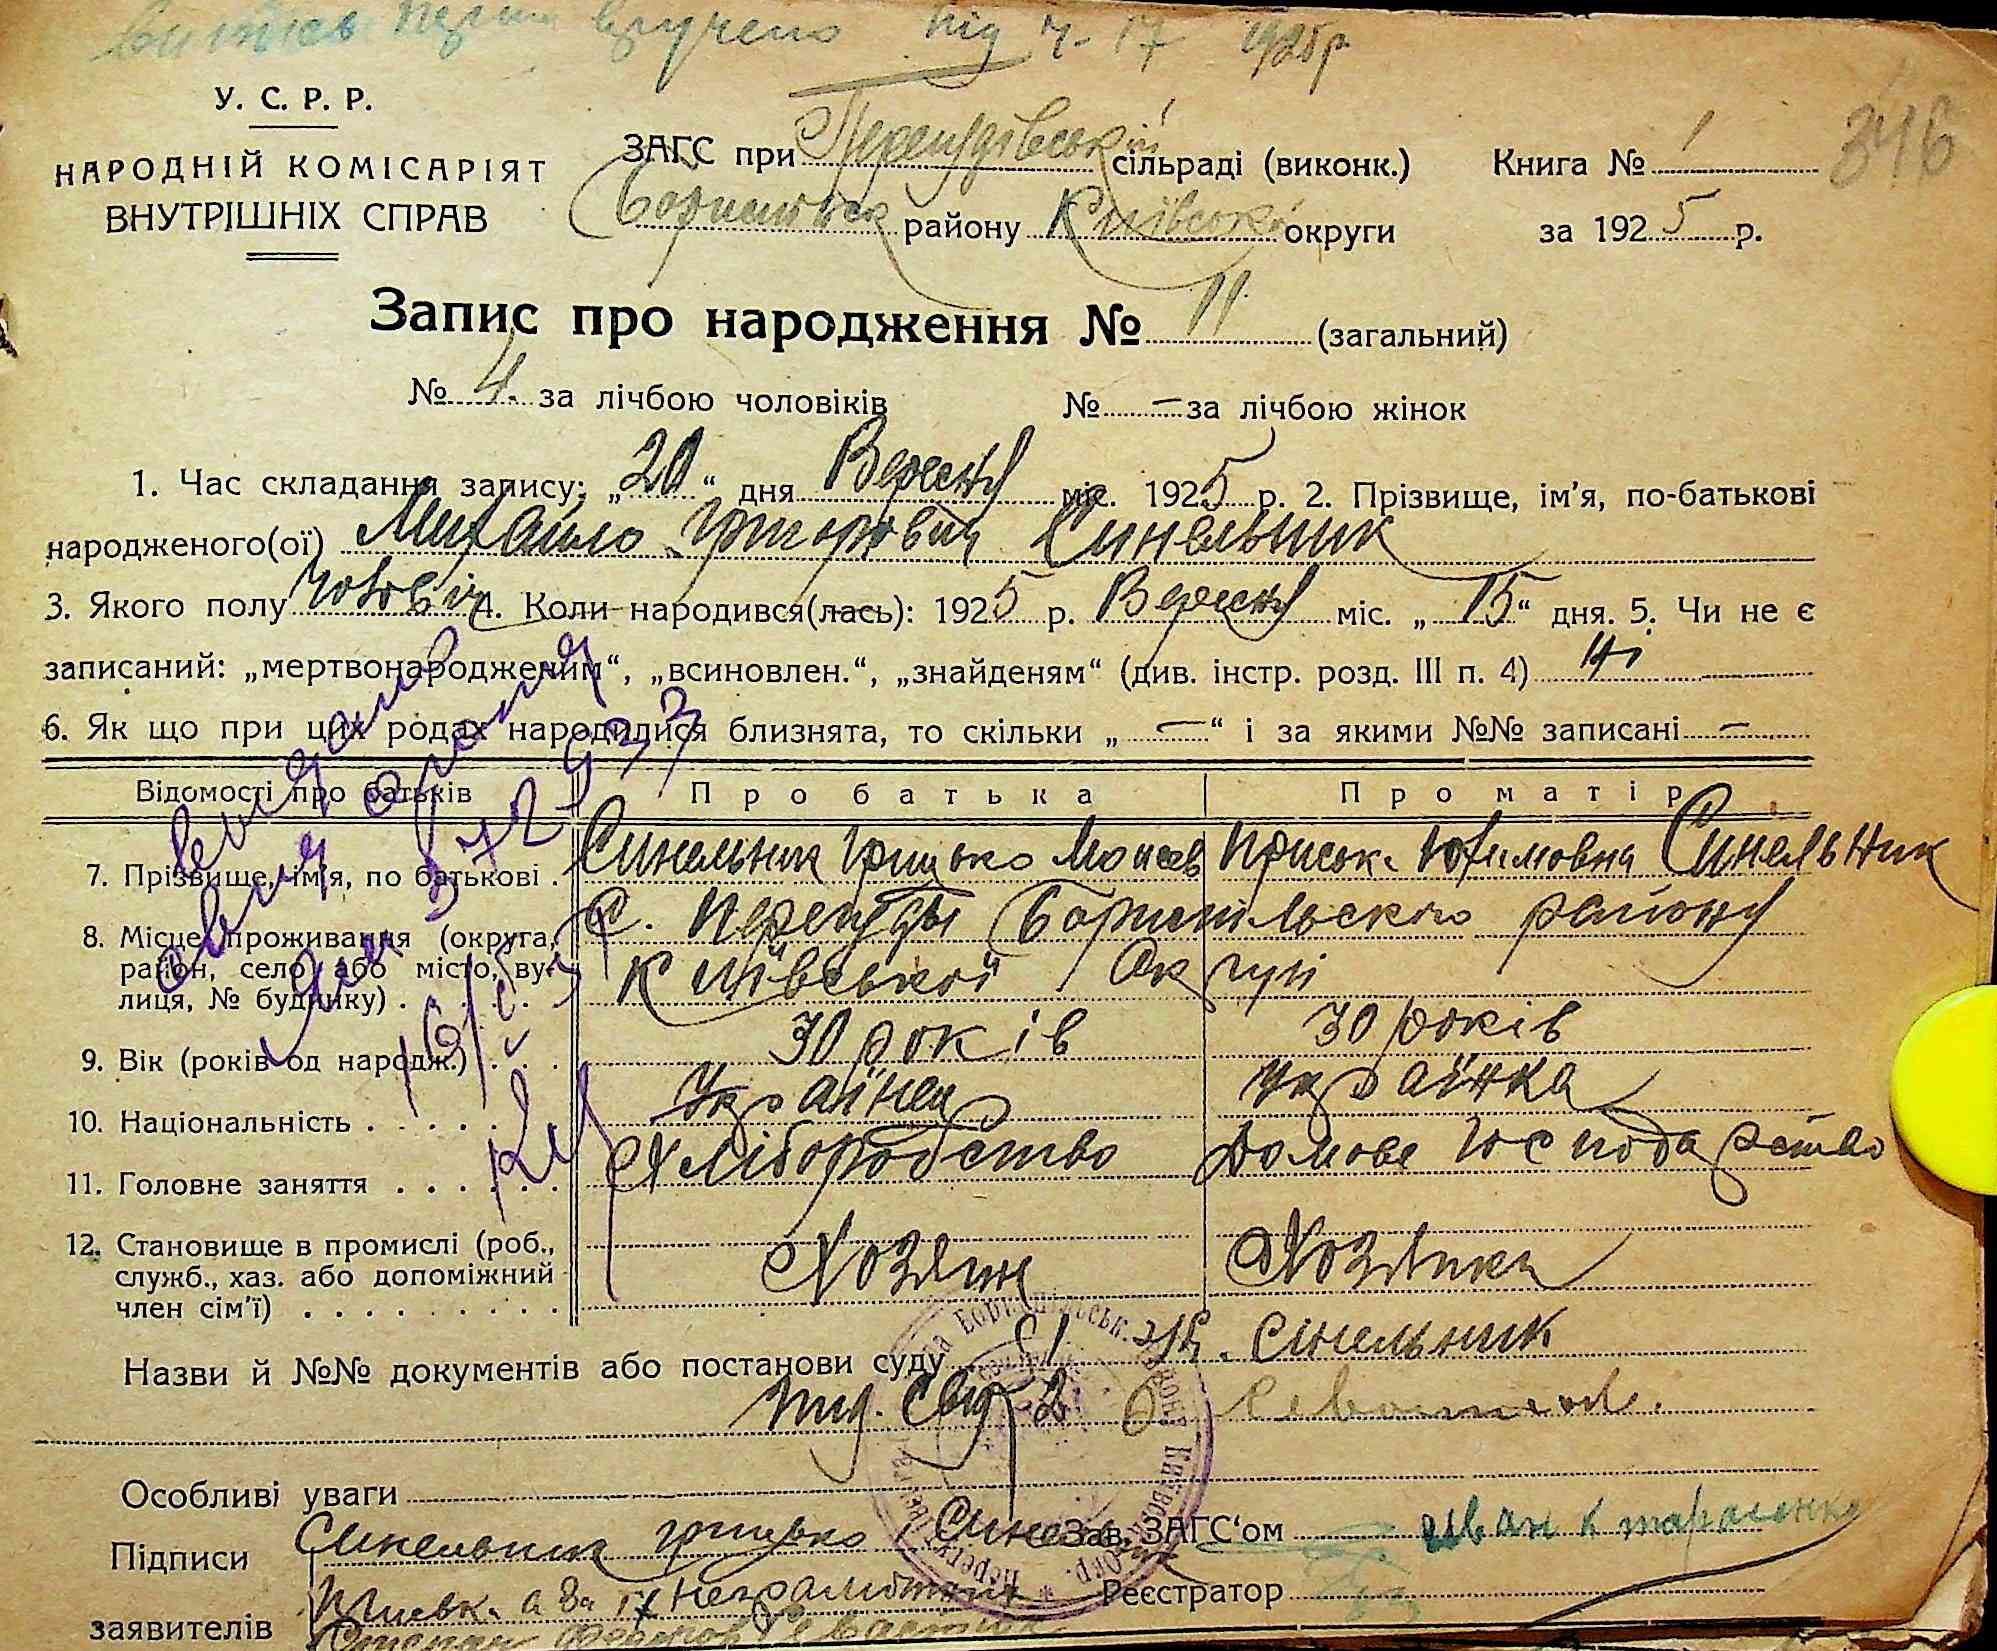 витяг вручено під ч. 17 1925 р
У. С. Р. Р.
НАРОДНІЙ КОМІСАРІЯТ
ВНУТРІШНІХ СПРАВ
ЗАГС при Перегудівській сільраді (виконк.)
Книга № 1
346
району Київської округи
за 1925 р.
Запис про народження № 11 (загальний)
№ 4. за лічбою чоловіків № — за лічбою жінок
1. Час складання запису: „20“ дня Вересня міс. 1925 р. 2. Прізвище, ім’я, по-батькові
народженого(ої) Михайло Григорович Синельник
3. Якого полу 4. Коли народився(лась): 1925 р. Вересня міс. „15“ дня. 5. Чи не є
записаний: „мертвонародженим“, „всиновлен.“, „знайденям“ (див. інстр. розд. III п. 4) ні
6. Як що при цих родах народилися близнята, то скільки „—“ і за якими №№ записані —
Відомості про батьків Про батька Про матір
7. Прізвище, ім’я, по батькові . Синельник Грицько Моисев Приськ. Юхимовна Синельник
8. Місце проживання (округа, с. Перегуды Бориспільского району
район, село або місто, ву- Київської Округи
лиця, № будинку) . . . .
9. Вік (років од народж.) . . . 30 років 30 років
10. Національність . . . . . Українец Українка
11. Головне заняття . . . . . . Хліборобство Домове господарство
12. Становище в промислі (роб.,
служб., хаз. або допоміжний Хозяин Хозяика
член сім’ї) . . . . . . . . .
Назви й №№ документів або постанови суду Сінельник
Особливі уваги
Підписи Синельник Грицько Зав. ЗАГС‘ом Иван
неграмотн Реєстратор
заявителів